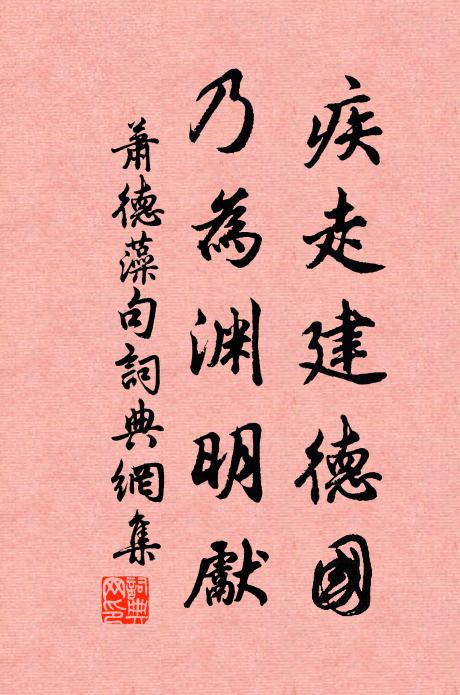 疾走建德國
乃為渊明獻
蕭德藻句詞典網集
詞典網印